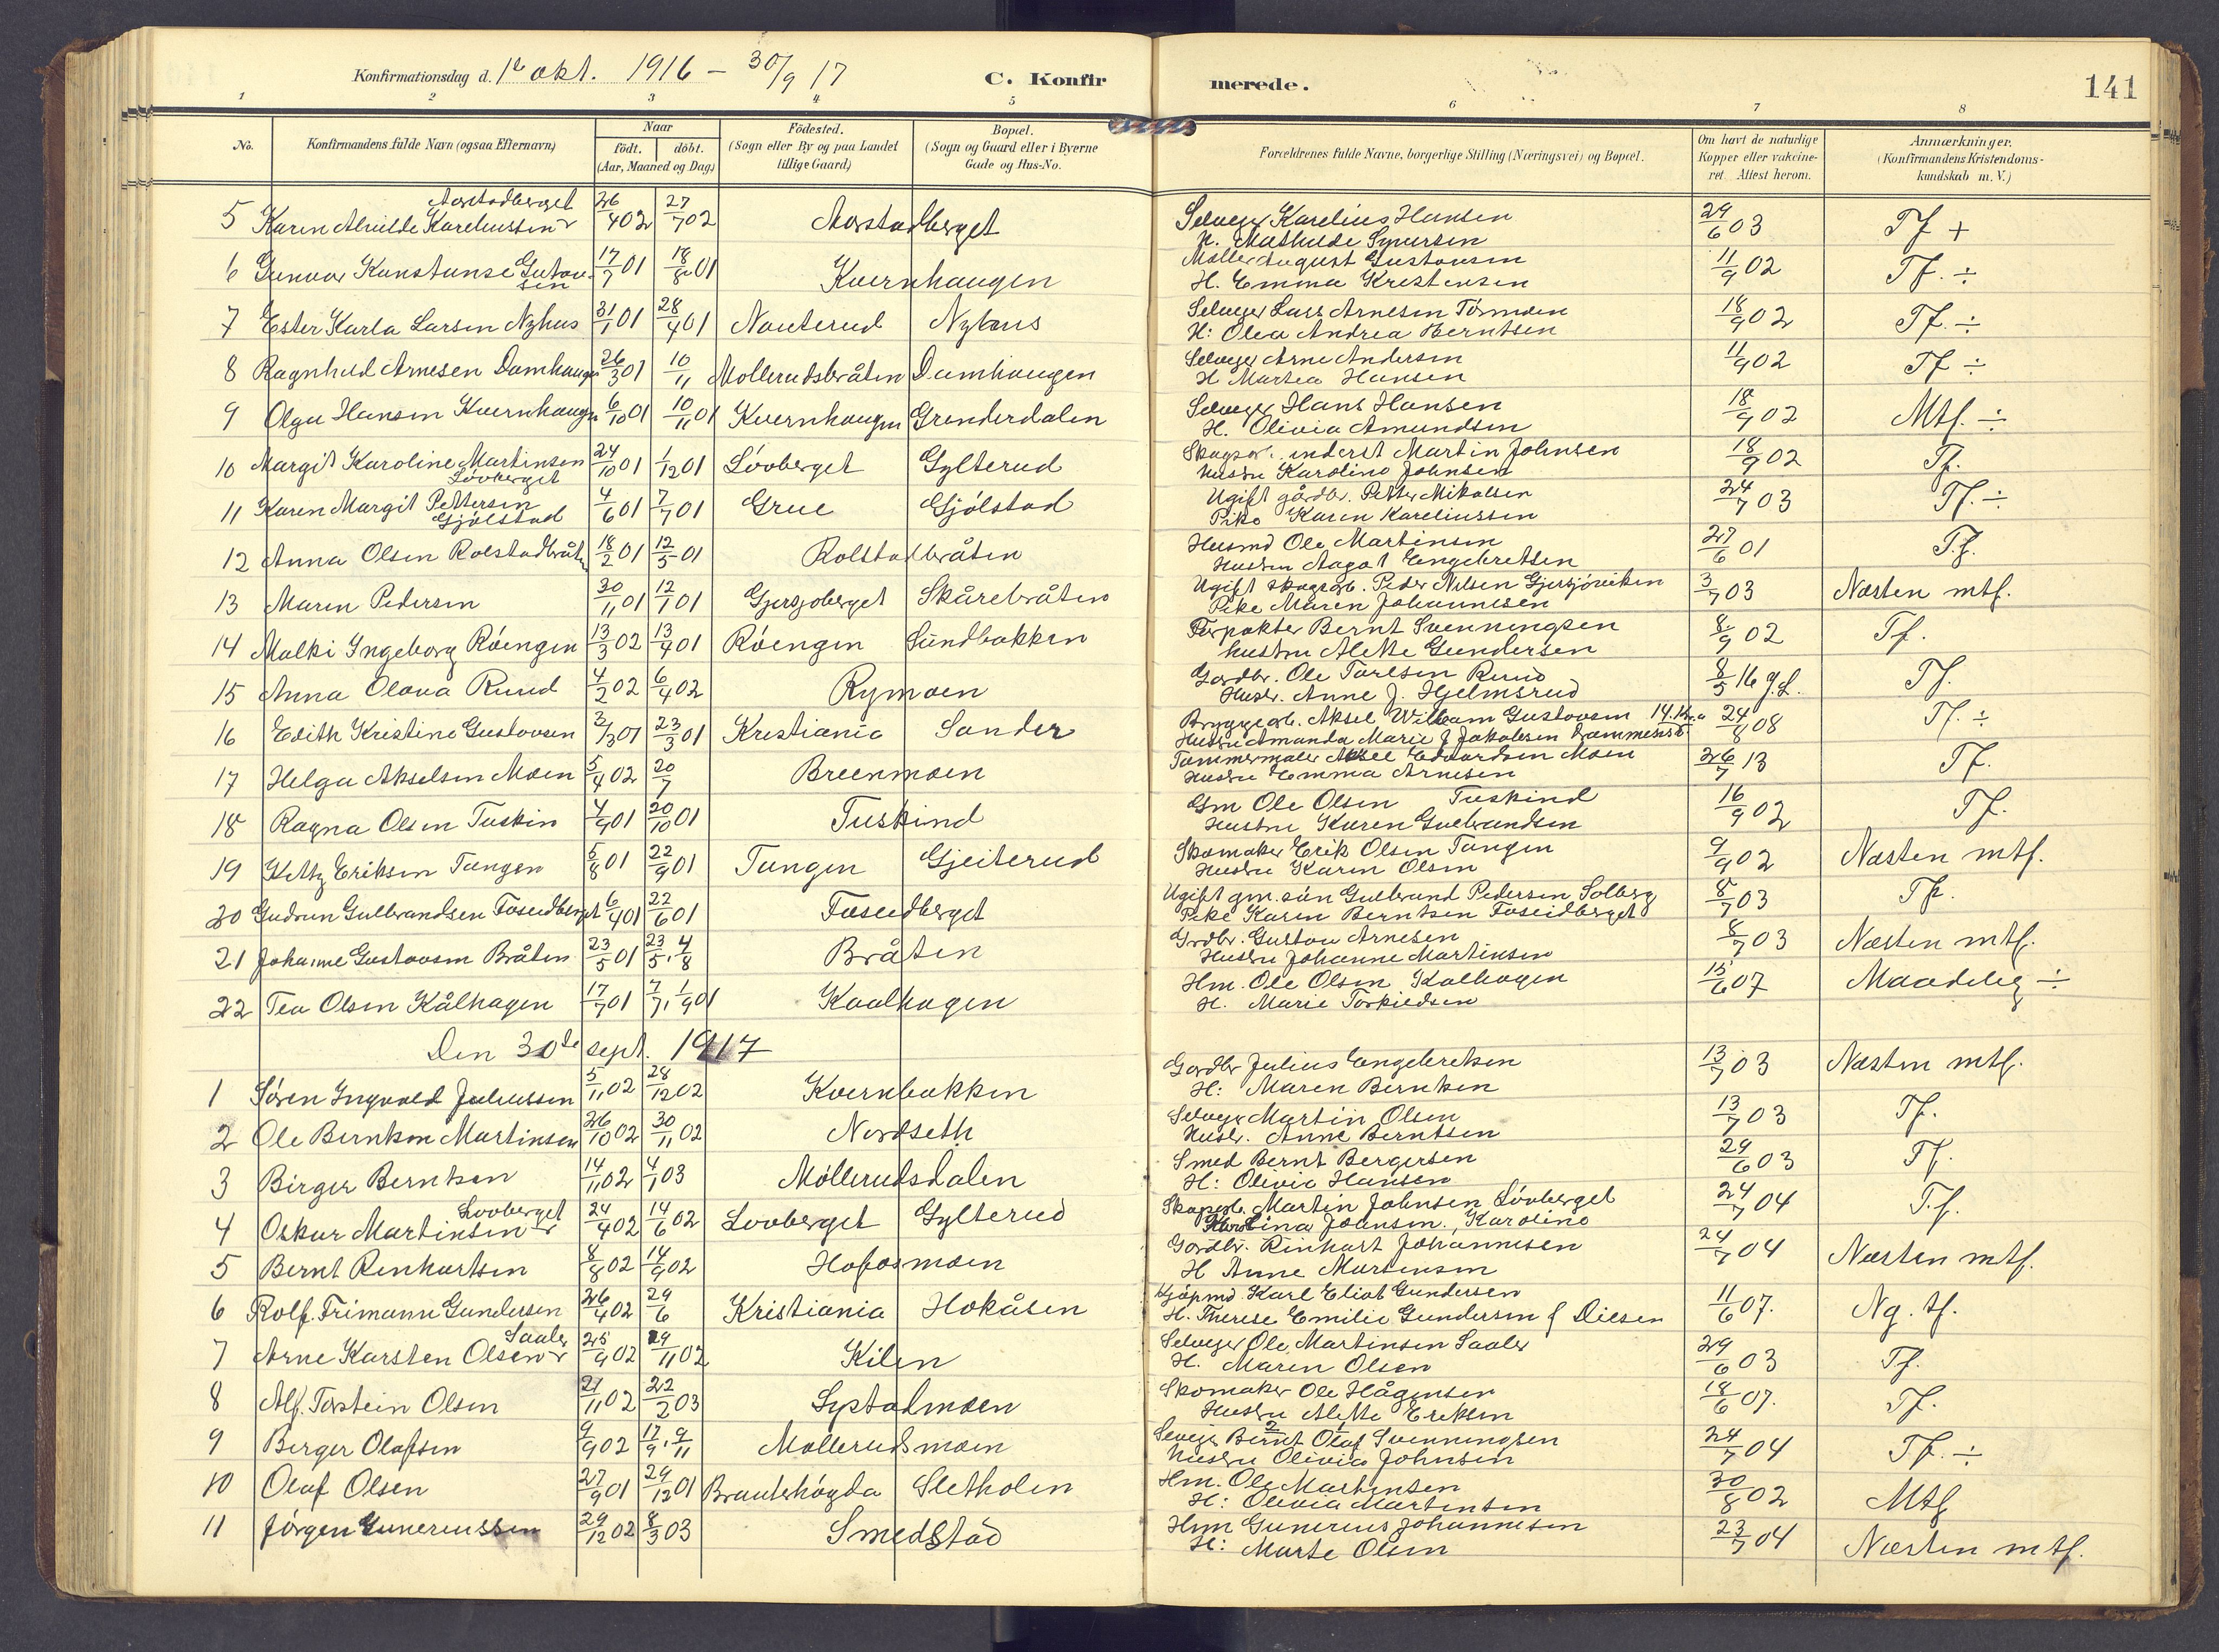 Konfirmationsdag d. 1e okt. 1916 – 30/9 17 C. Konfirmerede. 141
1 2 3 4 5 6 7 8
No. Konfirmandens fulde Navn (ogsaa Efternavn) Naar födt. döbt. (Aar, Maaned og Dag) Födested. (Sogn eller By og paa Landet tillige Gaard) Bopæl. (Sogn og Gaard eller i Byerne Gade og Hus-No. Forældrenes fulde Navne, borgerlige Stilling (Næringsvei) og Bopæl. Om havt de naturlige Kopper eller vakcineret. Attest herom. Anmærkninger. (Konfirmandens Kristendomskundskab m. V.)
5 Karen Alvilde Kareliussen Aarstadberget 26/4 02 27/7 02 Aarstadberget Selveger Karelius Hansen 29/6 03 Tf +
H. Mathilde Syversen
6 Gunvor Konstanse Gustavsen 17/7 01 18/8 01 Kvernhaugen Møller August Gustavsen 11/9 02 Tf. ÷
H. Emma Kristensen
7 Ester Karla Larsen Nyhus 31/1 01 28/4 01 Nauterud Nyhus Selveger Lars Arnesen Tørmoen 18/9 02 Tf. ÷
H: Olea Andrea Berntsen
8 Ragnhild Arnesen Damhaugen 26/3 01 10/11 Møllerudsbråten Damhaugen Selveger Arne Andersen 11/9 02 Tf ÷
H Martea Hansen
9 Olga Hansen Kvernhaugen 6/10 01 10/11 01 Kvernhaugen Grenderdalen Selveger Hans Hansen 18/9 02 Mtf. ÷
H. Olivia Amundsen
10 Margit Karoline Martinsen Løvberget 24/10 01 1/12 01 Løvberget Gylterud Skogsar. inderst Martin Johnsen 18/9 02 Tf.
Hustru Karoline Johnsen
11 Karen Margit Pettersen Gjølstad 4/6 01 7/7 01 Grue Gjølstad Ugift gårdbr. Petter Mikalsen 24/7 03 Tf. ÷
Pike Karen Kareliussen
12 Anna Olsen Rolstadbråten 18/2 01 12/5 01 Rolstadbråten Husmd Ole Martinsen 27/6 01 T.f.
Hustru Aagot Engebretsen
13 Maren Pedersen 30/11 01 12/1 01 Gjersjøberget Skårebråten Ugift skogsarb. Peder Nilsen Gjersjøviken 3/7 03 Næsten mtf.
Pike Maren Johannesen
14 Malki Ingeborg Røengen 13/3 02 13/4 01 Røengen Sundbakken Forpakter Bernt Svenningsen 8/9 02 Tf.
hustru Alette Gundersen
15 Anna Olava Ruud 4/2 02 6/4 02 Rymoen Gardbr. Ole Tarlsen Ruud 8/5 16 g.L. Tf.
Hustr. Anne J. Hjelmsrud
16 Edith Kristine Gustavsen 2/3 01 23/3 01 Kristiania Sander Bryggearb. Aksel William Gustavsen 24/8 08 Tf. ÷
Hustru Amanda Marie f Jakobsen
17 Helga Akselsen Moen 5/4 02 20/7 Breenmoen Tømmermåler Aksel Edvardsen Moen 26/7 13 Tf.
Hustru Emma Arnesen
18 Ragna Olsen Tuskin 4/9 01 20/10 01 Tuskind Gm Ole Olsen Tuskind 16/9 02 Tf.
Hustru Karen Gulbrandsen
19 Kitty Eriksen Tangen 5/8 01 22/9 01 Tangen Gjeiterud Skomaker Erik Olsen Tangen 9/9 02 Næsten mtf.
Hustru Karen Olsen
20 Gudrun Gulbrandsen Foseidberget 6/4 01 22/6 01 Foseidberget Ugift gm. sön Gulbrand Pedersen Solberg 8/7 03 Tf.
Pike Karen Berntsen Foseidberget
21 Johanne Gustavsen Bråten 23/5 01 23/5, 4/8 Bråten Grdbr. Gustav Arnesen 8/7 03 Næsten mtf.
Hustru Johanne Martinsen
22 Tea Olsen Kålhagen 17/7 01 7/7, 1/9 01 Kaalhagen Hm. Ole Olsen Kalhagen 15/6 07 Maadelig ÷
H. Marie Torkildsen
Den 30de sept. 1917
1 Søren Ingvald Juliussen 5/11 02 28/12 02 Kvernbakken Gardbr Julius Engebretsen 13/7 03 Næsten mtf.
H: Maren Berntsen
2 Ole Berntsen Martinsen 26/10 02 30/11 02 Nordseth Selveger Martin Olsen 13/7 03 Tf.
Hustr. Anne Berntsen
3 Birger Berntsen 14/11 02 4/1 03 Møllerudsdalen Smed Bernt Bergersen 29/6 03 Tf.
H: Olivia Hansen
4 Oskar Martinsen Lovberget 24/4 02 14/6 02 Lovberget Gylterud Skogsarb. Martin Johnsen Løvberget 24/7 04 T.f.
Karolina Johnsen., Karoline
5 Bernt Renhartsen 8/8 02 14/9 02 Hofosmoen Gardbr. Rinhart Johannesen 24/7 04 Næsten mtf.
H Anne Martinsen
6 Rolf. Frimann Gundersen 26/4 02 29/6 Kristiania Hokåsen Kjøpmd Karl Eliot Gundersen 11/6 07. Ng. tf.
H. Therese Emilie Gundersen f Diesen
7 Arne Karsten Olsen Saaler 25/9 02 29/11 02 Kilen Selveger Ole Martinsen Saaler 29/6 03 Tf.
H. Maren Olsen
8 Alf. Torstein Olsen 21/11 02 22/2 03 Systadmoen Skomaker Ole Hågensen 18/6 07. Tf.
Hustru Alette Eriksen
9 Berger Olafsen 9/9 02 17/9, 9/11 Mollerudsmoen Selveger Bernt Olaf Svenningsen 24/7 04 Tf. ÷
Hustru Olivia Johnsen
10 Olaf Olsen 27/9 01 29/12 01 Brauterhøgda Sletholen Hm. Ole Martinsen 30/8 02 Mtf
H: Olivia Martinsen
11 Jörgen Gunerussen 29/12 02 8/3 03 Smedstad Hm Gunerius Johannesen 23/7 04 Næsten mtf.
H: Marte Olsen